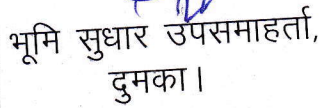 भूमि सुधार उपसमाहर्ता,
दुमका।